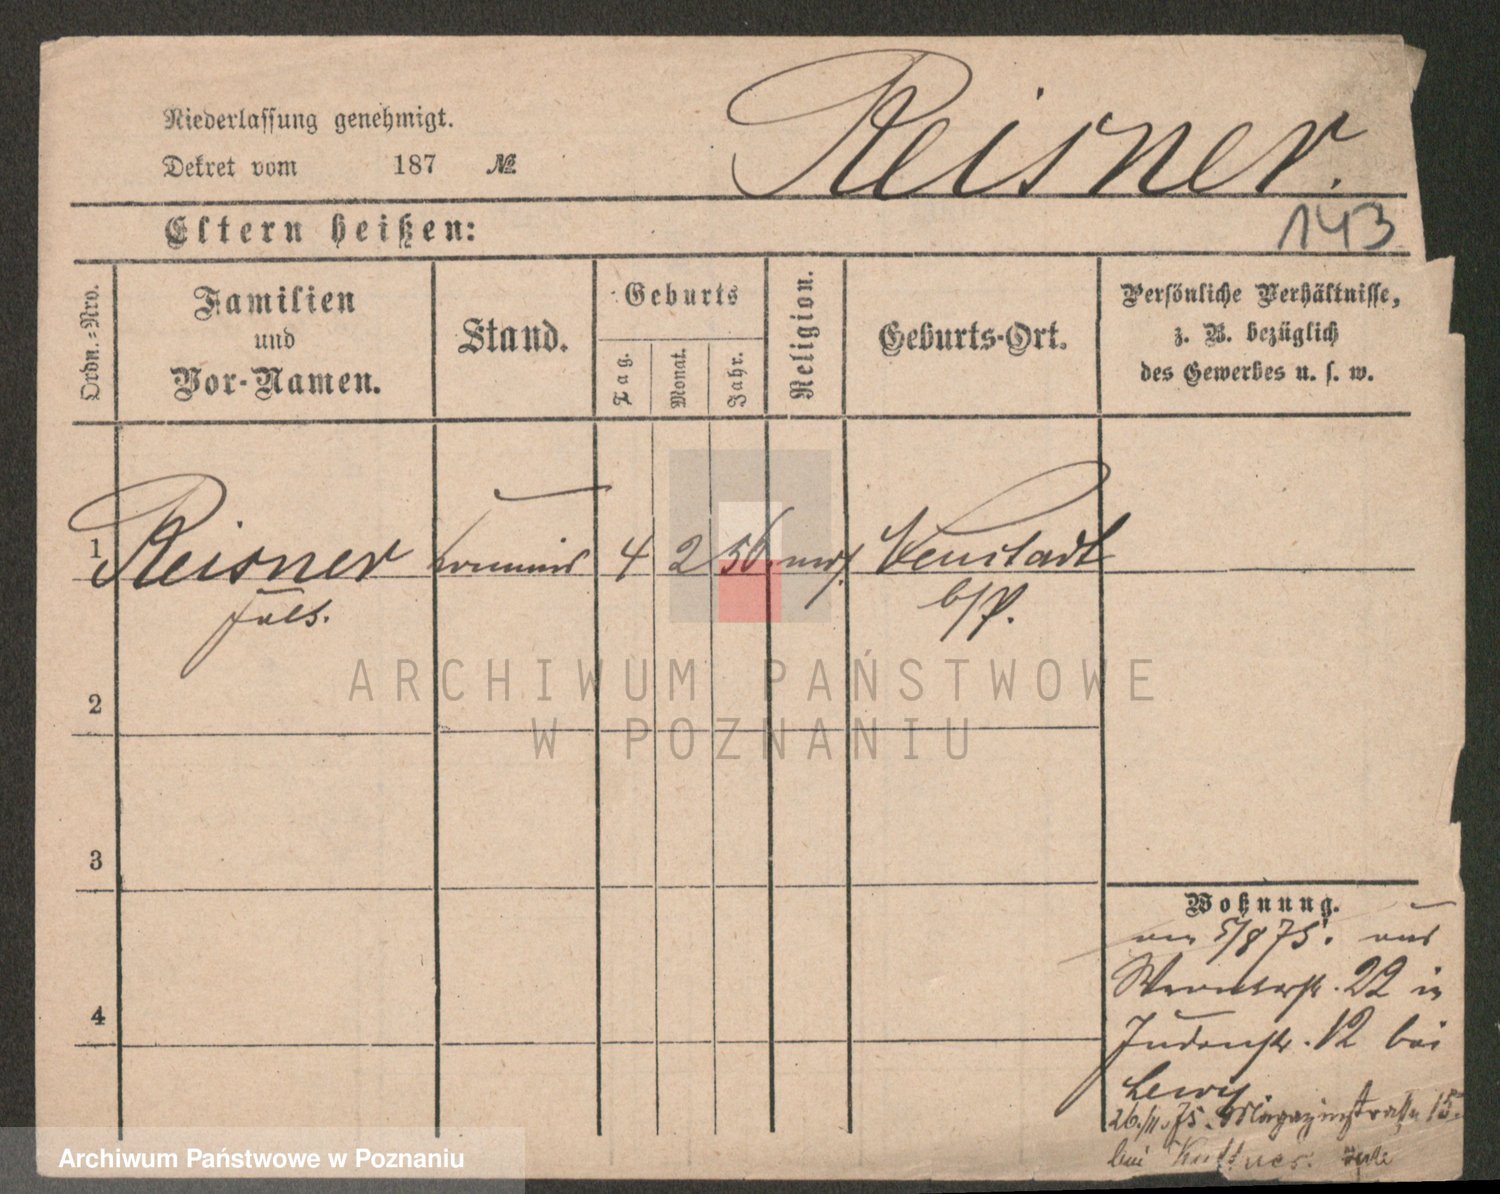 Niederlassung genehmigt.
Dekret vom 187 №
Reisner.
Eltern heißen:
143
Ordn.=Nro.
Familien
und
Vor-Namen.
Stand.
Geburts
Tag.
Monat.
Jahr.
Religion.
Geburts-Ort.
Persönliche Verhältnisse,
z. B. bezüglich
des Gewerbes u. s. w.
1 Reisner Commis 4 2 56 mos. Neustadt
Juls. b/P.
2
3
4
Wohnung.
am 5/8 75. aus
22 in
Judenstr. 12 bei
Lewy
26./11.75. Magazinstraße 15
bei
ARCHIWUM PAŃSTWOWE
W POZNANIU
Archiwum Państwowe w Poznaniu